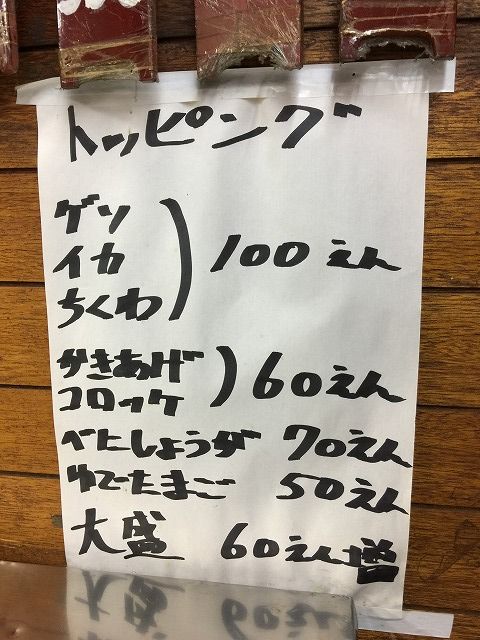 トッピング
ゲソ
イカ
ちくわ
) 100えん
かきあげ
コロッケ
) 60えん
べにしょうが 70えん
ゆでたまご 50えん
大盛 60えん増